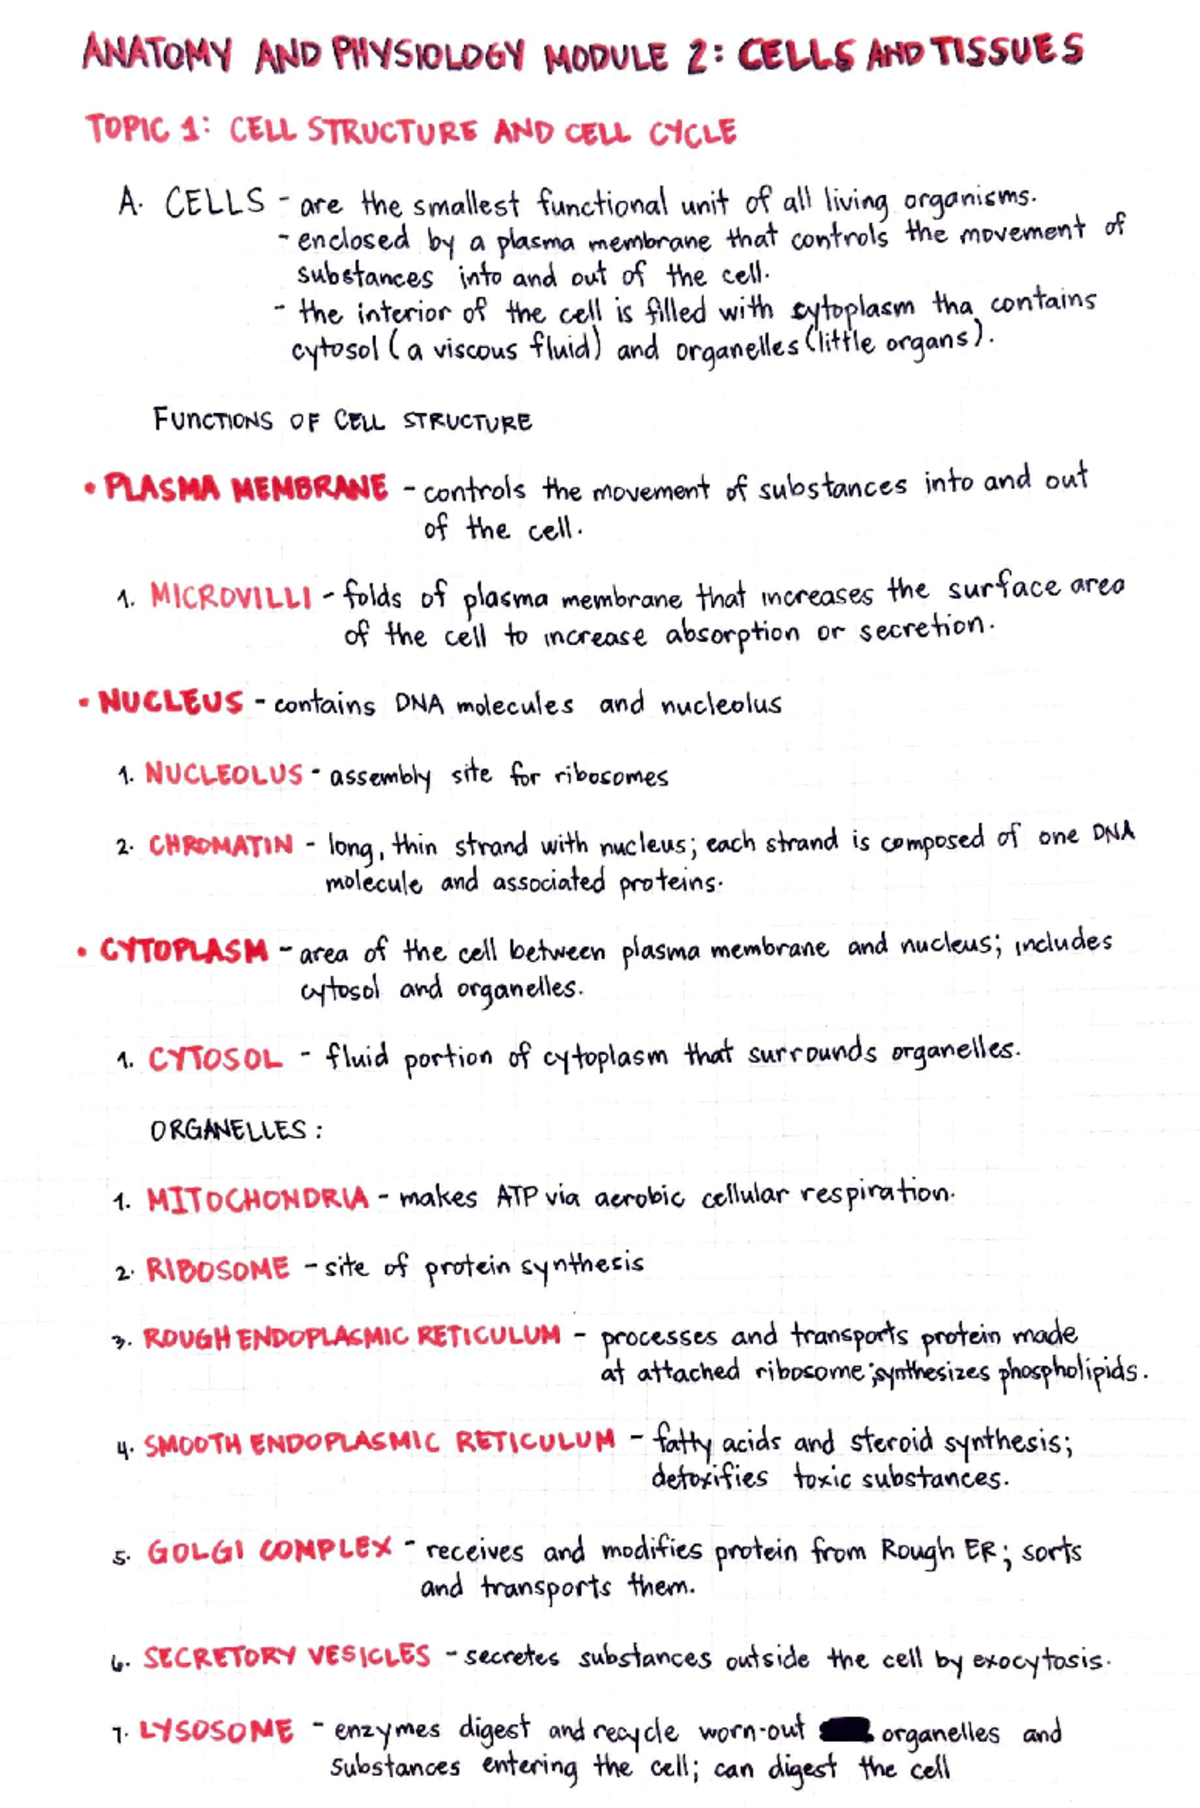 ANATOMY AND PHYSIOLOGY MODULE 2: CELLS AND TISSUES
TOPIC 1: CELL STRUCTURE AND CELL CYCLE
A. CELLS - are the smallest functional unit of all living organisms.
- enclosed by a plasma membrane that controls the movement of
substances into and out of the cell.
- the interior of the cell is filled with cytoplasm tha contains
cytosol (a viscous fluid) and organelles (little organs).
FUNCTIONS OF CELL STRUCTURE
• PLASMA MEMBRANE - controls the movement of substances into and out
of the cell.
1. MICROVILLI - folds of plasma membrane that increases the surface area
of the cell to increase absorption or secretion.
• NUCLEUS - contains DNA molecules and nucleolus
1. NUCLEOLUS - assembly site for ribosomes
2. CHROMATIN - long, thin strand with nucleus; each strand is composed of one DNA
molecule and associated proteins.
• CYTOPLASM - area of the cell between plasma membrane and nucleus; includes
cytosol and organelles.
1. CYTOSOL - fluid portion of cytoplasm that surrounds organelles.
ORGANELLES:
1. MITOCHONDRIA - makes ATP via aerobic cellular respiration.
2. RIBOSOME - site of protein synthesis
3. ROUGH ENDOPLASMIC RETICULUM - processes and transports protein made
at attached ribosome; synthesizes phospholipids.
4. SMOOTH ENDOPLASMIC RETICULUM - fatty acids and steroid synthesis;
detoxifies toxic substances.
5. GOLGI COMPLEX - receives and modifies protein from Rough ER; sorts
and transports them.
6. SECRETORY VESICLES - secretes substances outside the cell by exocytosis.
7. LYSOSOME - enzymes digest and recycle worn-out organelles and
substances entering the cell; can digest the cell